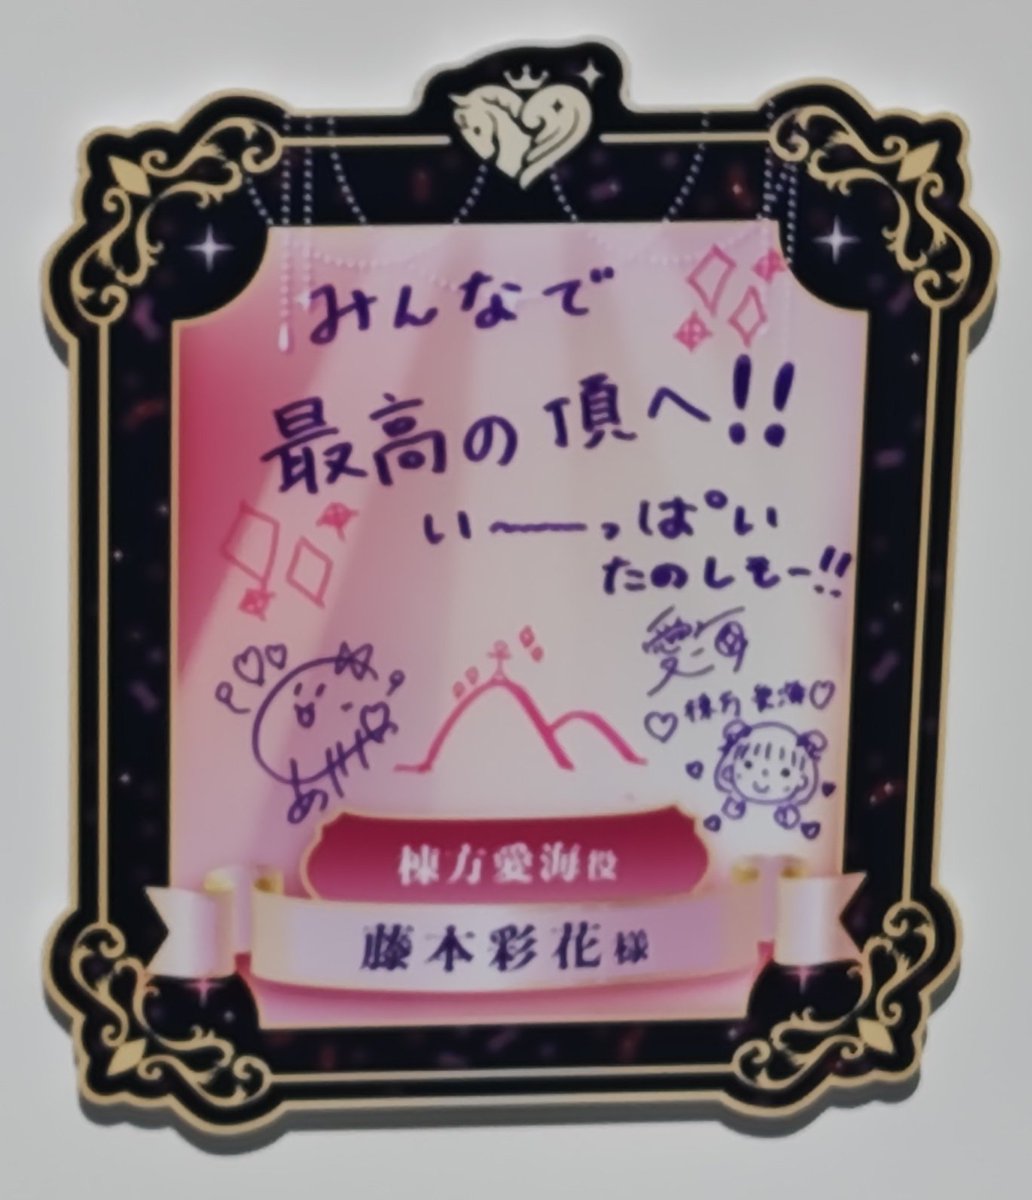 みんなで
最高の頂へ!!
い〜ーっぱい
たのしもー!!
愛海
棟方愛海
あ
棟方愛海役
藤本彩花様